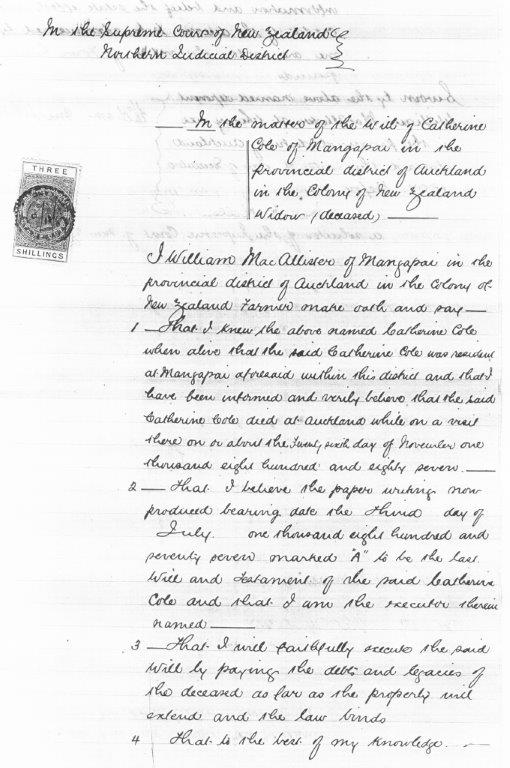 In the Supreme Court of New Zealand
Northern Judicial District
In the matter of the Will of Catherine
Cole of Mangapai in the
provincial district of Auckland
in the Colony of New Zealand
Widow (deceased)
THREE
SHILLINGS
I William MacAllister of Mangapai in the
provincial district of Auckland in the Colony of
New Zealand Farmer make oath and say
1 That I knew the above named Catherine Cole
when alive that the said Catherine Cole was resident
at Mangapai aforesaid within this district and that I
have been informed and verily believe that the said
Catherine Cole died at Auckland while on a visit
there on or about the Twenty sixth day of November one
thousand eight hundred and eighty seven.
2 That I believe the paper writing now
produced bearing date the Third day of
July one thousand eight hundred and
seventy seven marked "A" to be the last
Will and Testament of the said Catherine
Cole and that I am the executor therein
named
3 That I will faithfully execute the said
Will by paying the debts and legacies of
the deceased as far as the property will
extend and the law binds
4 That to the best of my knowledge